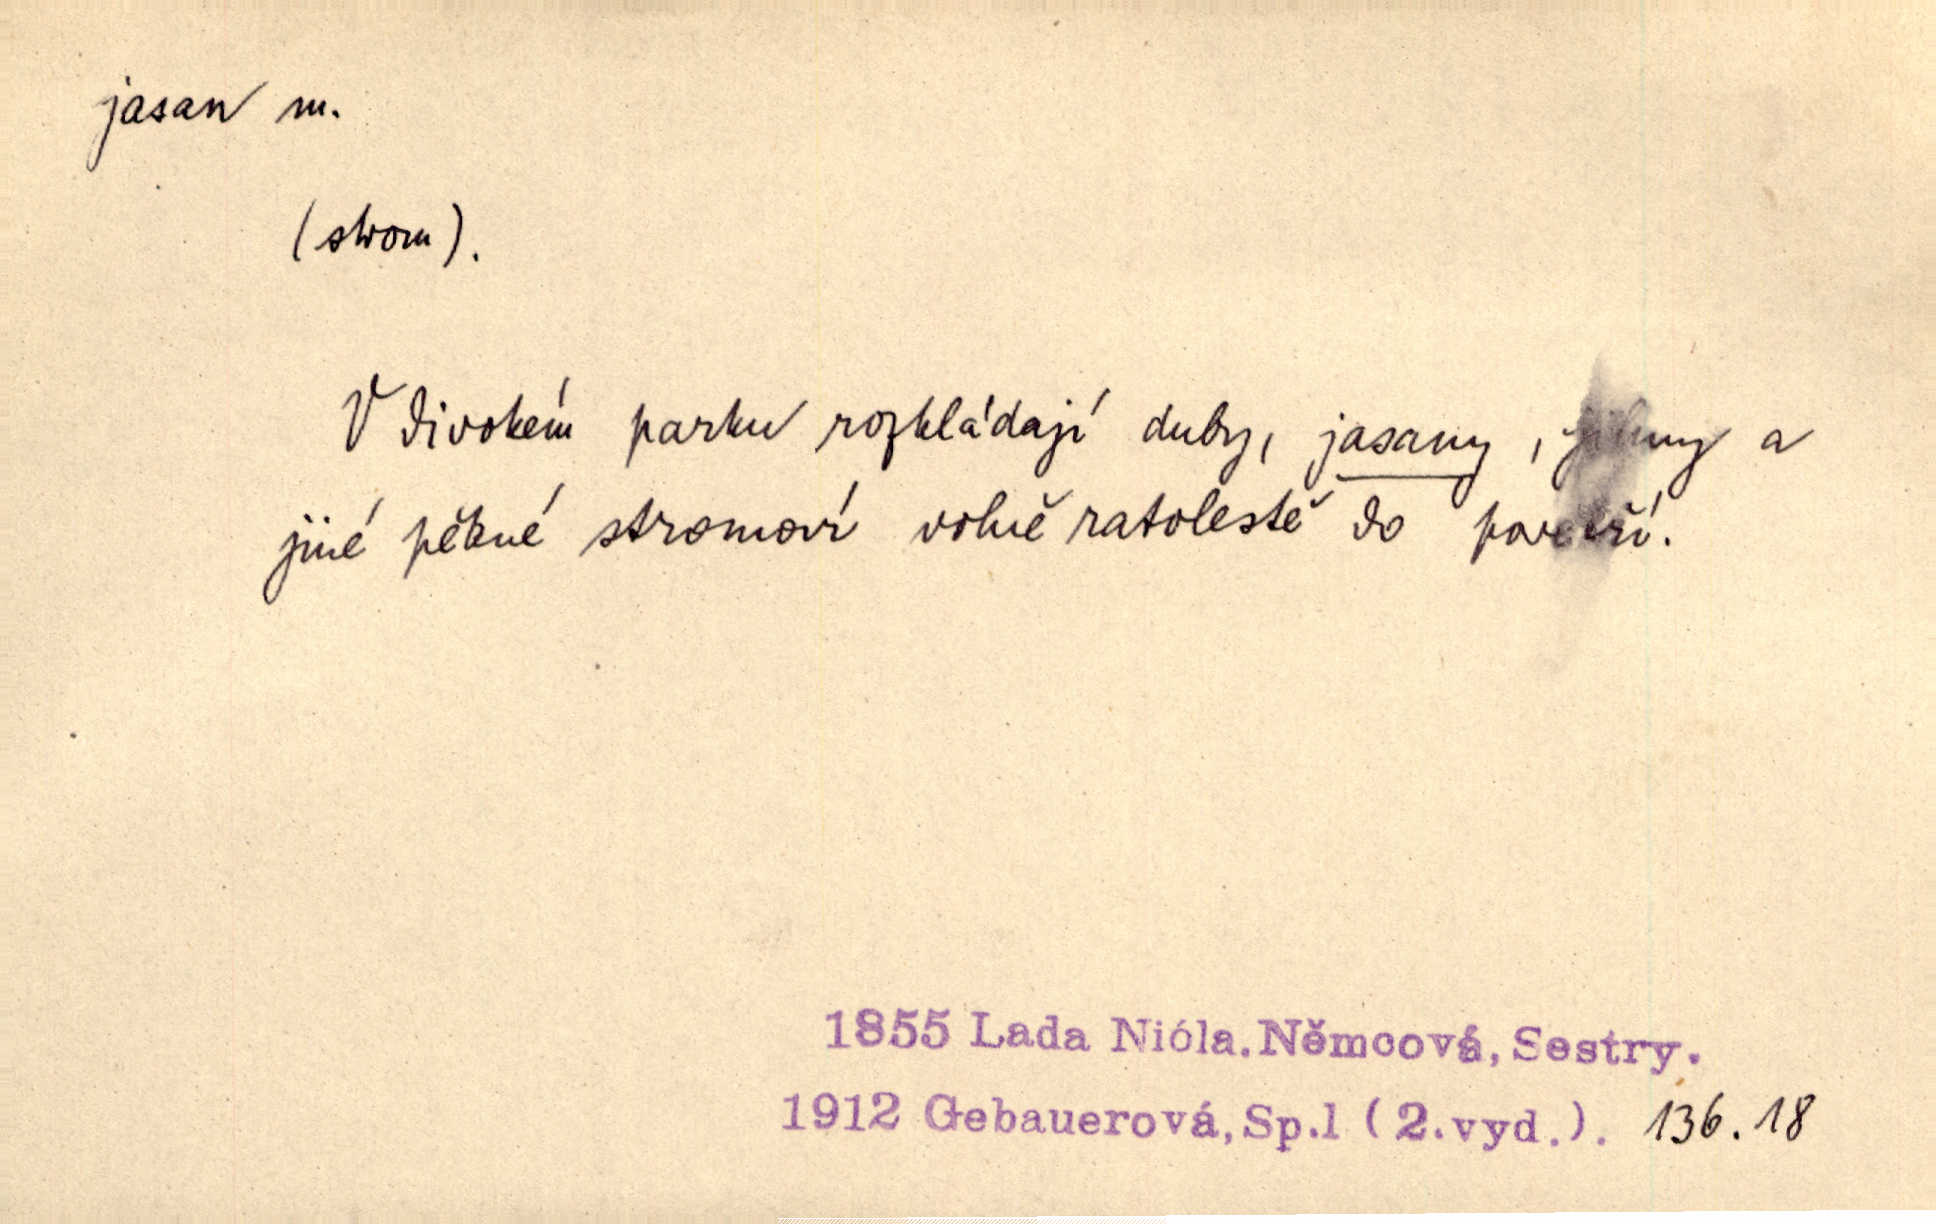 jasan m.
(strom).
V divokém parku rozkládají duby, jasany, jilmy a
jiné pěkné stromoví volně ratolestě do povětří.
1855 Lada Nióla. Němcová, Sestry.
1912 Gebauerová, Sp.1 (2.vyd.). 136.18